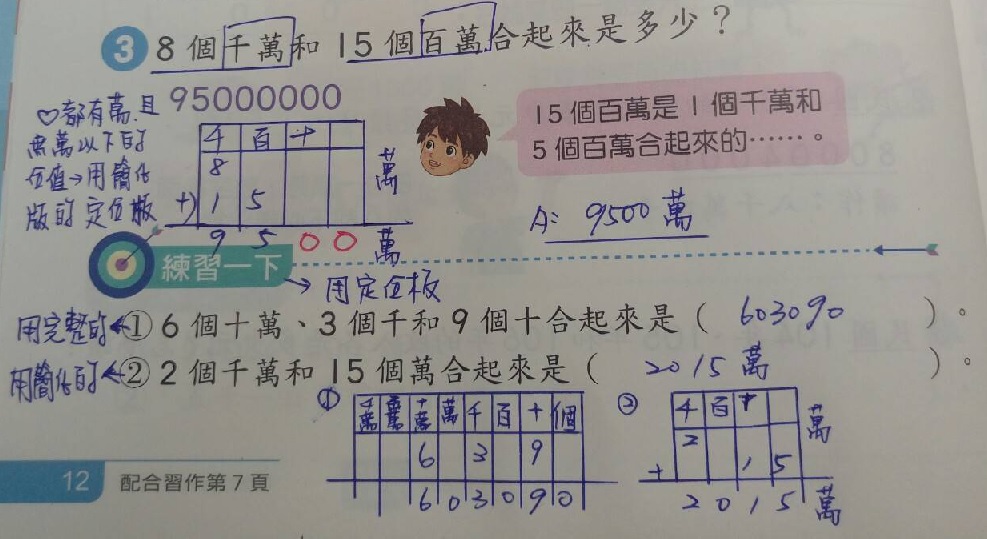 3 8個千萬和15個百萬合起來是多少？
95000000
♡都有萬,且
無萬以下的
位值→用簡化
版的定位板
千 百 十
8
+) 1 5
萬
9 5 0 0 萬
15個百萬是1個千萬和
5個百萬合起來的……。
A: 9500萬
練習一下
→用定位板
用完整的← ① 6個十萬、3個千和9個十合起來是（ 603090 ）。
用簡化的← ② 2個千萬和15個萬合起來是（ 2015萬 ）。
①
千萬 百萬 十萬 萬 千 百 十 個
6 3 9
6 0 3 0 9 0
②
千 百 十
2
萬
+ 1 5
2 0 1 5 萬
12 配合習作第7頁